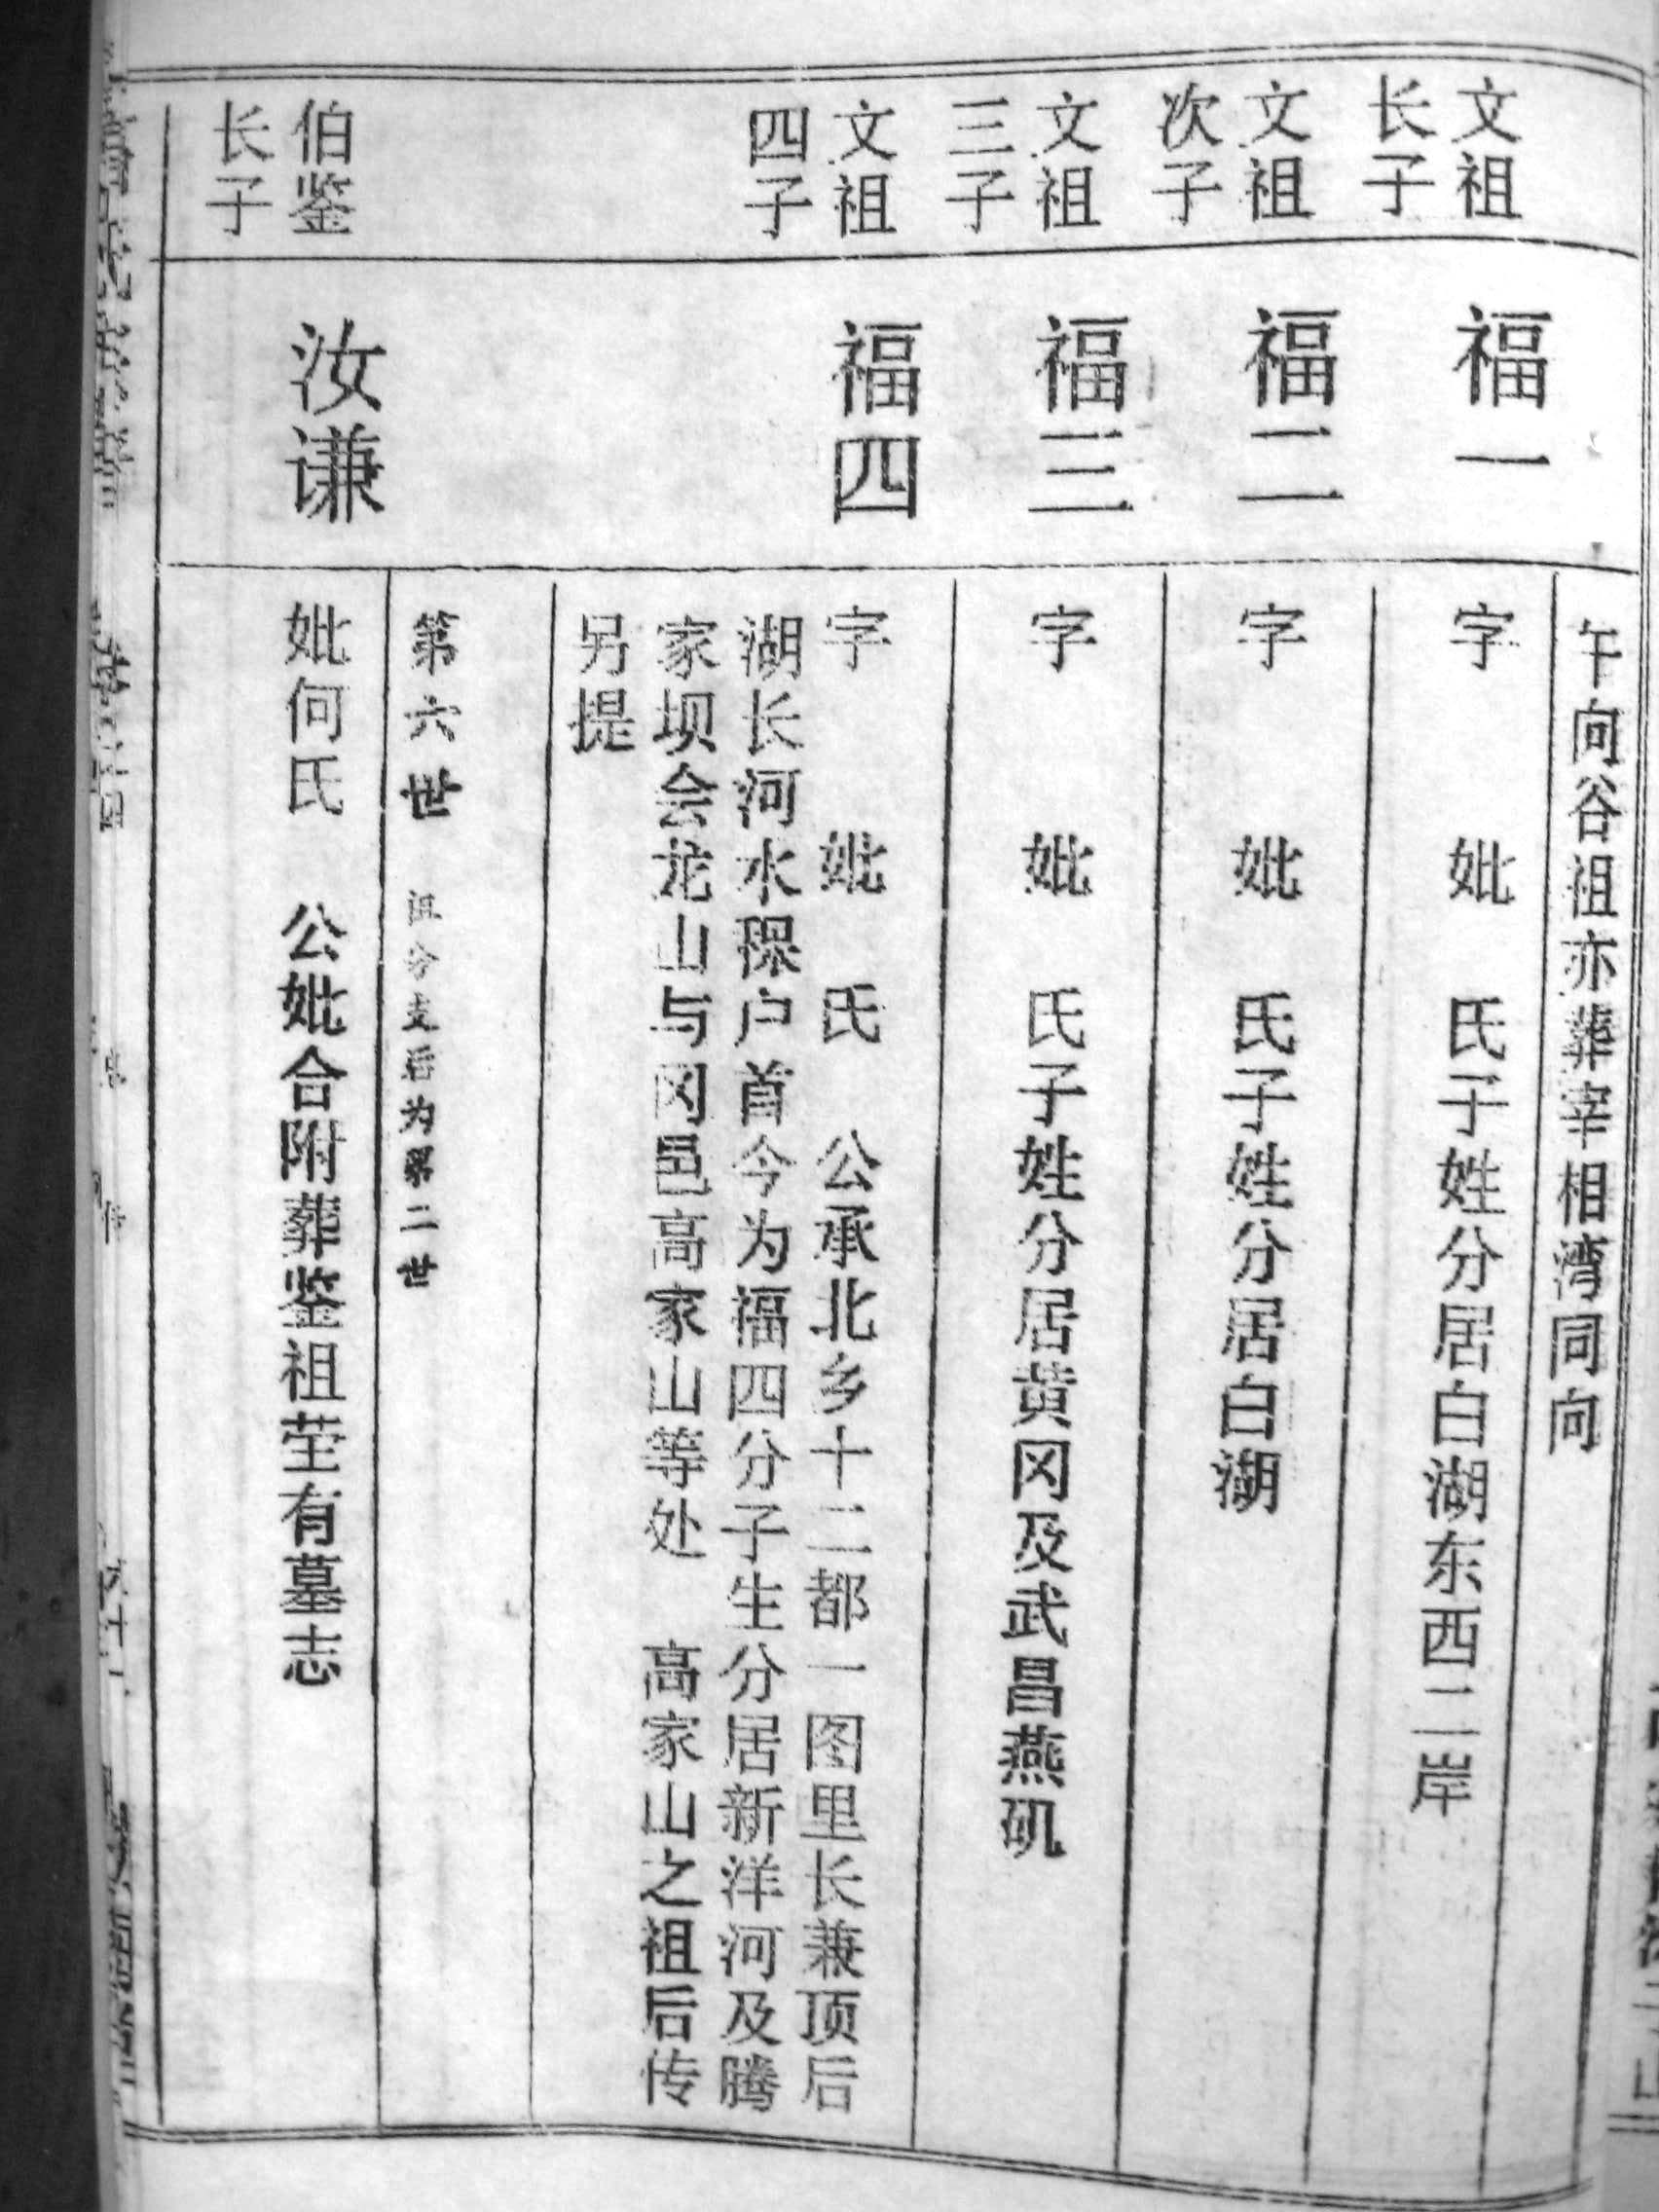 午向谷祖亦葬宰相湾同向
文祖
长子
福一
字 妣 氏子姓分居白湖东西二岸
文祖
次子
福二
字 妣 氏子姓分居白湖
文祖
三子
福三
字 妣 氏子姓分居黄冈及武昌燕矶
文祖
四子
福四
字 妣 氏 公承北乡十二都一图里长兼顶后
湖长河水课户首今为福四分子生分居新洋河及腾
家坝会龙山与冈邑高家山等处 高家山之祖后传
另提
第六世 分支后为第二世
伯鉴
长子
汝谦
妣何氏 公妣合附葬鉴祖茔有墓志